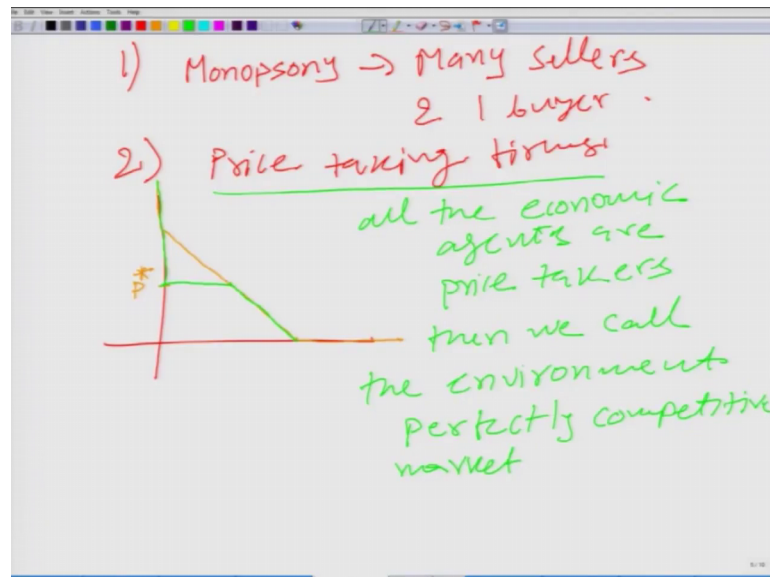 File Edit View Insert Actions Tools Help
1) Monopsony → Many sellers
& 1 buyer.
2) Price taking firms.
all the economic
agents are
price takers
then we call
the environment
perfectly competitive
market
P*